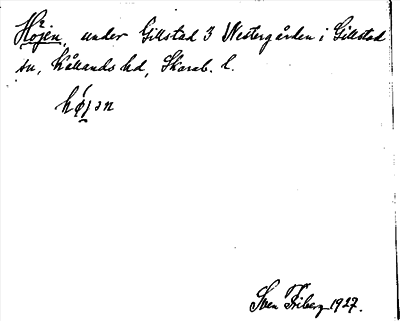 Höjen, under Gillstad 3 Westergården i Gillstad
sn, Kållands hd, Skarab. l.
hø̀jən
Sven Friberg 1927.